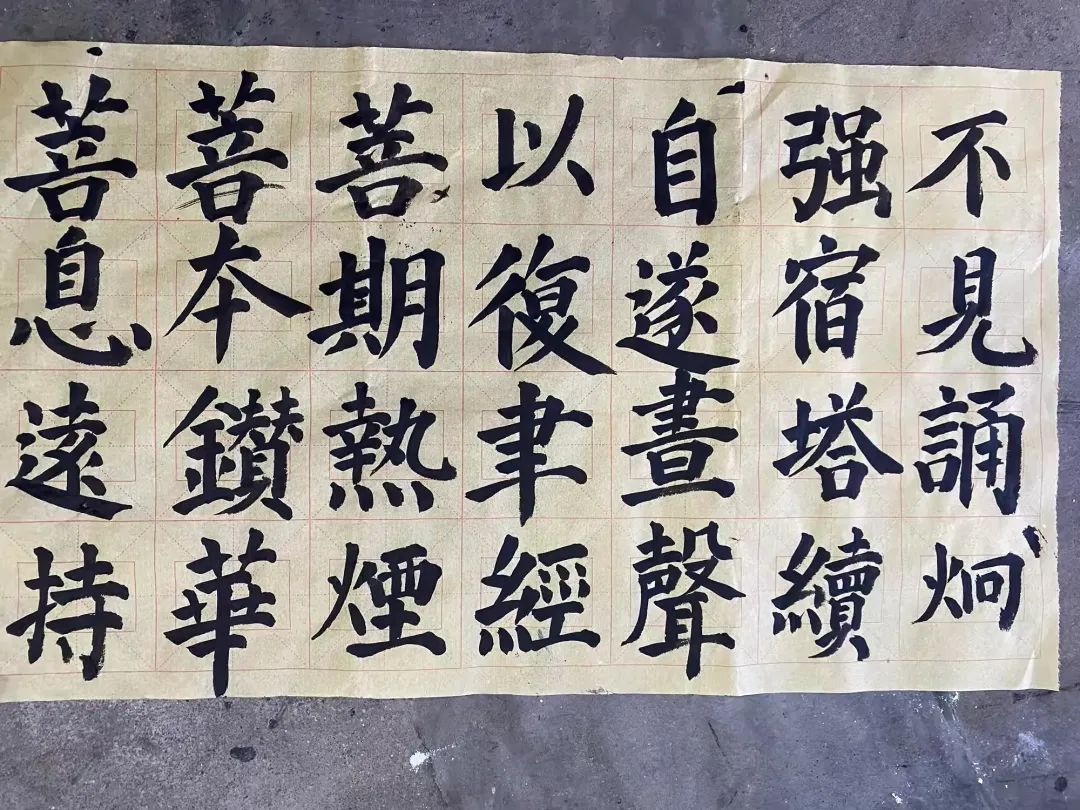 不見誦炯
强宿塔續
自遂晝聲
以復聿經
菩期熱煙
菩本鑽華
菩息遠持